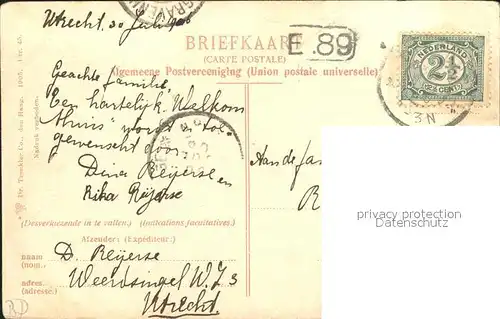 Utrecht, 30 Juli 1906
'SGRAVEN
BRIEFKAART
(CARTE POSTALE)
E.89
Algemeene Postvereeniging (Union postale universelle)
NEDERLAND
2½
CENT
3N
Geachte familie,
Een hartelijk Welkom
"thuis" wordt U toe-
gewenscht door
Dina Reijerse en
Rika Reijerse
Aan de fa
R
(Desverkiezende in te vullen.) (Indications facultatives.)
Afzender: (Expediteur:)
naam D. Reijerse
(nom.)
adres. Weerdsingel W.Z. 3
(adresse.)
Utrecht.
Dr. Trenkler Co., den Haag. 1905.
Nadruk verboden.
privacy protection
Datenschutz